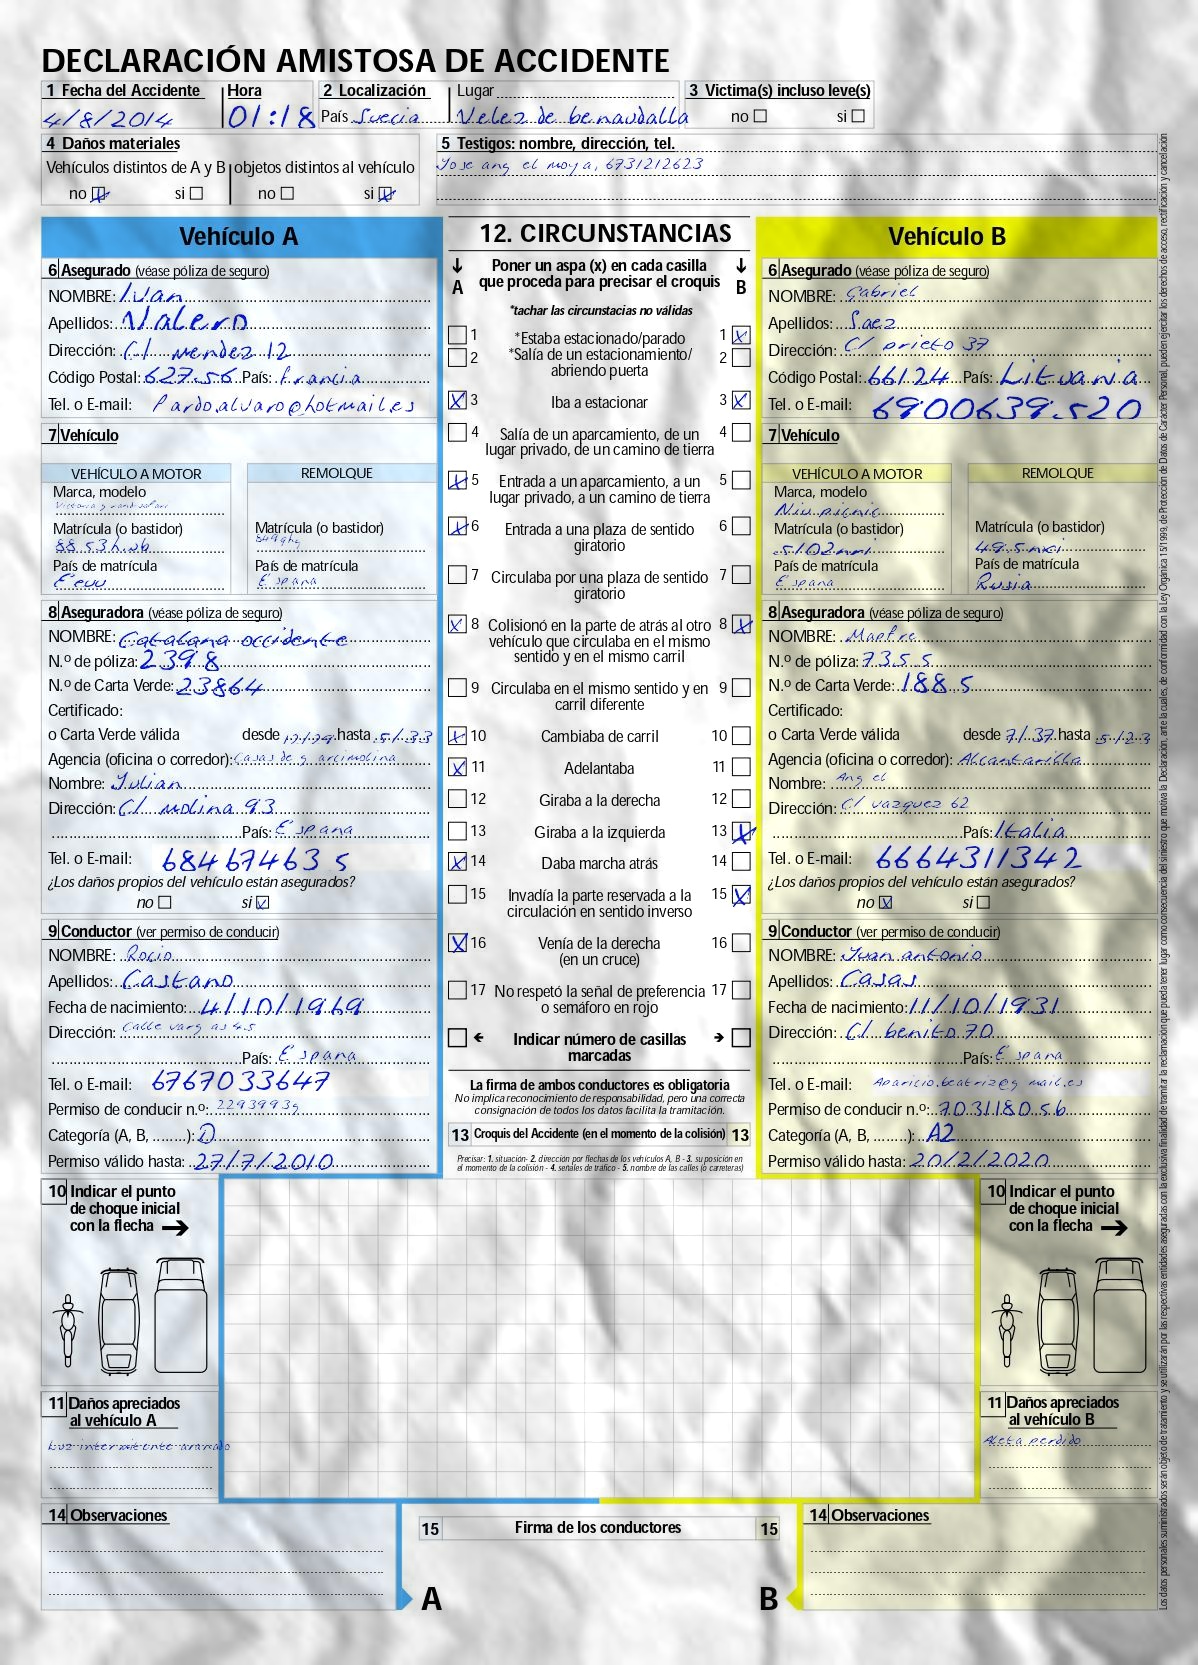 DECLARACIÓN AMISTOSA DE ACCIDENTE
1 Fecha del Accidente Hora 2 Localización Lugar 3 Victima(s) incluso leve(s)
4/8/2014 01:18 País Suecia Velez de benaudalla no si
4 Daños materiales 5 Testigos: nombre, dirección, tel.
Vehículos distintos de A y B objetos distintos al vehículo Jose ang el moya, 6731212623
no X si no si X
Vehículo A
6 Asegurado (véase póliza de seguro)
NOMBRE: Ivan
Apellidos: Valero
Dirección: C/ mendez 12
Código Postal: 627.56 País: francia
Tel. o E-mail: Pardo.alvaro@hotmail.es
7 Vehículo
VEHÍCULO A MOTOR REMOLQUE
Marca, modelo
Matrícula (o bastidor) Matrícula (o bastidor)
País de matrícula País de matrícula
Eeuu Espana
8 Aseguradora (véase póliza de seguro)
NOMBRE: Catalana occidente
N.º de póliza: 239.8
N.º de Carta Verde: 23864
Certificado:
o Carta Verde válida desde hasta 5/1.33
Agencia (oficina o corredor):
Nombre: Julian
Dirección: C/ molina 93
País: Espana
Tel. o E-mail: 684674635
¿Los daños propios del vehículo están asegurados?
no si X
9 Conductor (ver permiso de conducir)
NOMBRE: Rocio
Apellidos: Castano
Fecha de nacimiento: 4/10/1969
Dirección: Calle varg as 45
País: Espana
Tel. o E-mail: 6767033647
Permiso de conducir n.º: 2293993g
Categoría (A, B, ........): D
Permiso válido hasta: 27/7/2010
12. CIRCUNSTANCIAS
A Poner un aspa (x) en cada casilla que proceda para precisar el croquis B
*tachar las circunstacias no válidas
1 *Estaba estacionado/parado 1 X
2 *Salía de un estacionamiento/ 2
abriendo puerta
X 3 Iba a estacionar 3 X
4 Salía de un aparcamiento, de un 4
lugar privado, de un camino de tierra
X 5 Entrada a un aparcamiento, a un 5
lugar privado, a un camino de tierra
X 6 Entrada a una plaza de sentido 6
giratorio
7 Circulaba por una plaza de sentido 7
giratorio
X 8 Colisionó en la parte de atrás al otro 8 X
vehículo que circulaba en el mismo
sentido y en el mismo carril
9 Circulaba en el mismo sentido y en 9
carril diferente
X 10 Cambiaba de carril 10
X 11 Adelantaba 11
12 Giraba a la derecha 12
13 Giraba a la izquierda 13 X
X 14 Daba marcha atrás 14
15 Invadía la parte reservada a la 15 X
circulación en sentido inverso
X 16 Venía de la derecha 16
(en un cruce)
17 No respetó la señal de preferencia 17
o semáforo en rojo
Indicar número de casillas
marcadas
La firma de ambos conductores es obligatoria
No implica reconocimiento de responsabilidad, pero una correcta
consignación de todos los datos facilita la tramitación.
13 Croquis del Accidente (en el momento de la colisión) 13
Precisar: 1. situación- 2. dirección por flechas de los vehículos A, B - 3. su posición en
el momento de la colisión - 4. señales de tráfico - 5. nombre de las calles (o carreteras)
Vehículo B
6 Asegurado (véase póliza de seguro)
NOMBRE: Gabriel
Apellidos: Saez
Dirección: C/ prieto 37
Código Postal: 66124 País: Lituania
Tel. o E-mail: 6900639520
7 Vehículo
VEHÍCULO A MOTOR REMOLQUE
Marca, modelo
Niu picnic
Matrícula (o bastidor) Matrícula (o bastidor)
País de matrícula País de matrícula
Espana Rusia
8 Aseguradora (véase póliza de seguro)
NOMBRE: Mapfre
N.º de póliza: 7355
N.º de Carta Verde: 188.5
Certificado:
o Carta Verde válida desde 7/.37 hasta
Agencia (oficina o corredor): Alcantarilla
Nombre: Ang el
Dirección: C/ vazquez 62
País: Italia
Tel. o E-mail: 6664311342
¿Los daños propios del vehículo están asegurados?
no X si
9 Conductor (ver permiso de conducir)
NOMBRE: Juan antonio
Apellidos: Casas
Fecha de nacimiento: 11/10/1931
Dirección: C/ benito 70
País: Espana
Tel. o E-mail: Aparicio.beatriz@g mail.es
Permiso de conducir n.º: 70311805b
Categoría (A, B, ........): A2
Permiso válido hasta: 20/2/2020
10 Indicar el punto
de choque inicial
con la flecha
11 Daños apreciados
al vehículo A
luz intermitente aranado
10 Indicar el punto
de choque inicial
con la flecha
11 Daños apreciados
al vehículo B
Aleta perdido
14 Observaciones
15 Firma de los conductores 15
A B
14 Observaciones
Los datos personales suministrados serán objeto de tratamiento y se utilizarán por las respectivas entidades aseguradas con la exclusiva finalidad de tramitar la reclamación que pueda tener lugar como consecuencia del siniestro que motiva la Declaración, ante la cuales, de conformidad con la Ley Orgánica 15/1999, de Protección de Datos de Carácter Personal, pueden ejercitar los derechos de acceso, rectificación y cancelación